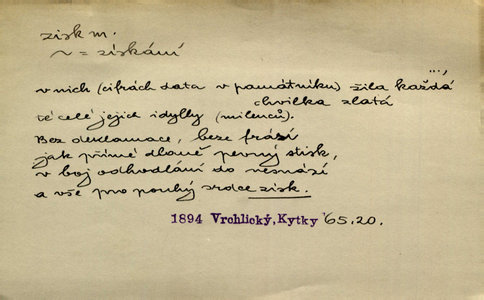 zisk m.
~ = získání
v nich (cifrách data v památníku) žila každá ...,
chvilka zlatá
té celé jejich idylly (milenců).
Bez deklamace, beze frází
jak přímé dlaně pevný stisk,
v boj odhodlání do nesnází
a vše pro pouhý srdce zisk.
1894 Vrchlický, Kytky '65.20.